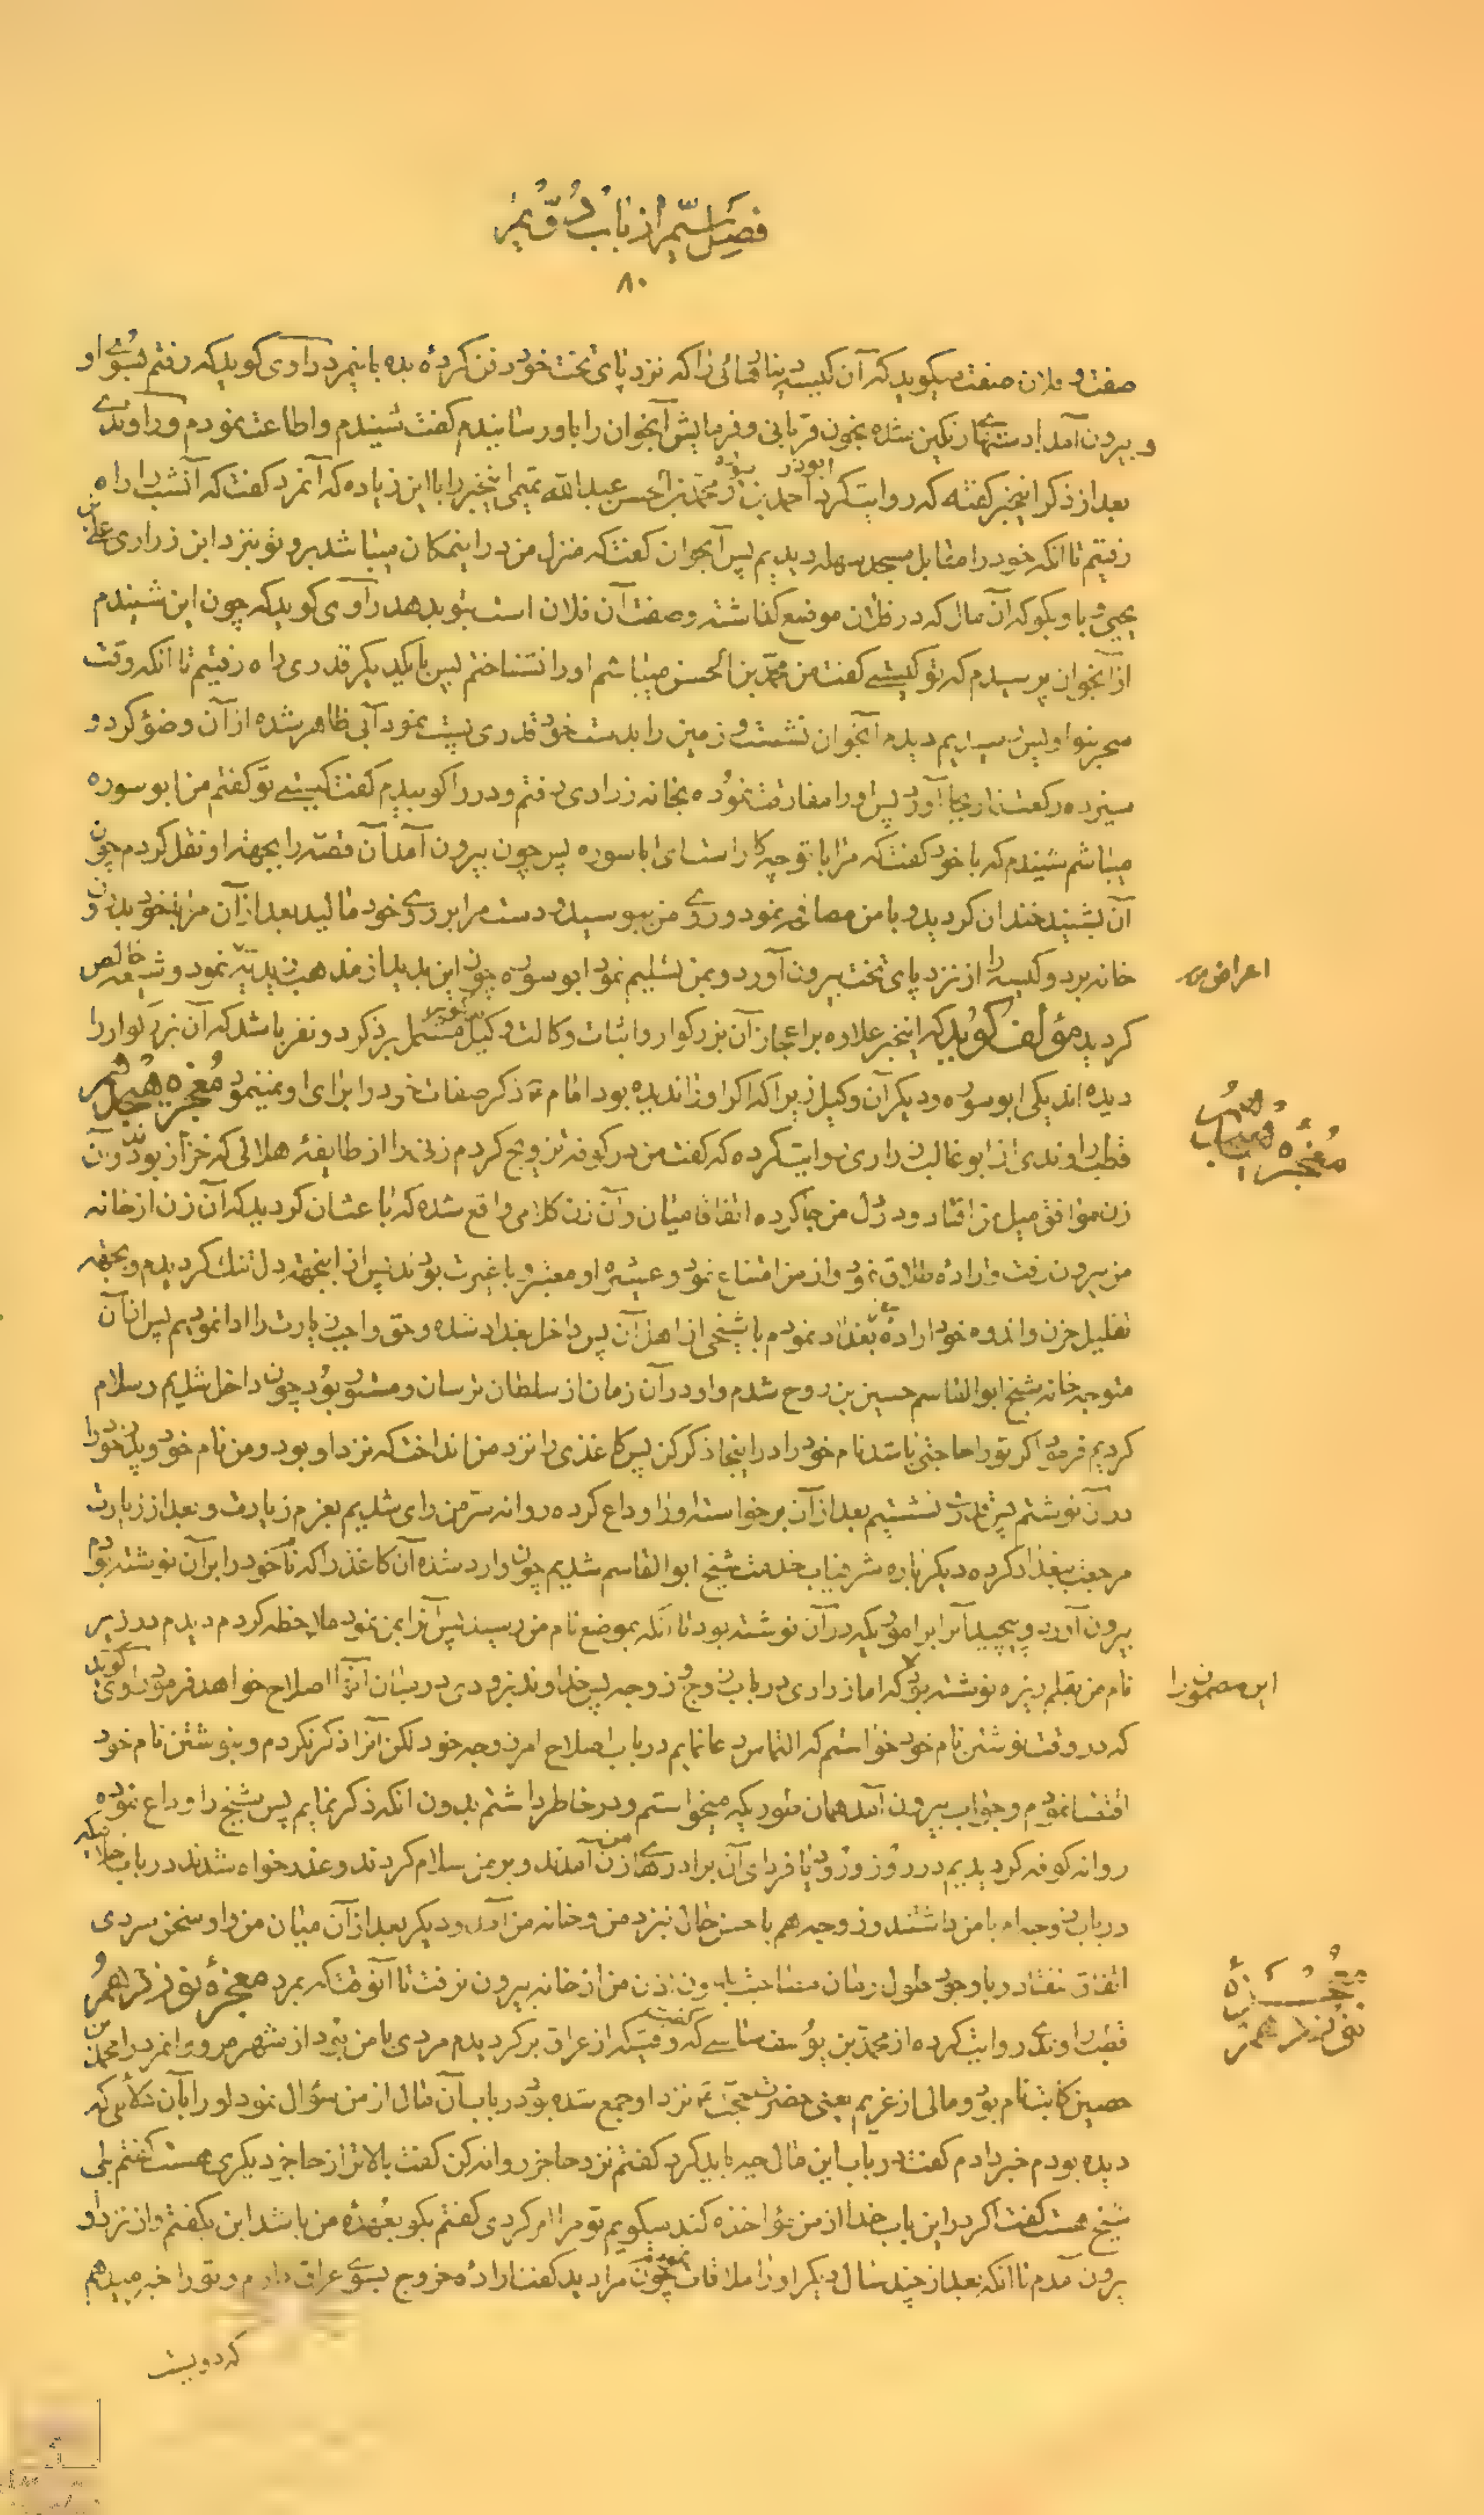 فصل سیّم از باب دُوّیم
۸۰
صفت و فلان صفت میکوید که آن کیسه دینارهائی را که نزد پای تخت خود دفن کردهٔ بده باینمرد راوی کوید که رفتم بسُوی او
و بیرون آمد با دستهای رنکین شده بخون قربانی و فرمایش آنجوان را باو رسانیدم کفت شنیدم و اطاعت نمودم و راوندی
بعد از ذکر اینخبر کفته که روایت کرد احمد بن ابوذر سوره محمد بن الحسن عبد الله تمیمی اینخبر را با این زیاده که آنمرد کفت که آنشب را راه
رفتیم تا آنکه خود را مقابل مسجد سهله دیدیم پس آنجوان کفت که منزل من در اینمکان میباشد برو تو بنزد ابن زراری علی بن
یحیی و باو بکو که آن مال که در فلان موضع کذاشته و صفت آن فلان است بتو بدهد راوی کوید که چون این شنیدم
از آنجوان پرسیدم که تو کیستی کفت من محمد بن الحسن میباشم او را نشناختم پس با یکدیکر قدری راه رفتیم تا آنکه وقت
سحر بنواویس رسیدیم دیدم آنجوان نشست و زمین را بدست خود قدری پست نمود آبی ظاهر شده از آن وضؤ کرد و
سیزده رکعت نماز بجا آورد پس او را مفارقت نموده بخانه زراری رفتم و در را کوبیدم کفت کیستی تو کفتم من ابو سوره
میباشم شنیدم که با خود کفت که مرا با تو چه کار است ای ابا سوره پس چون بیرون آمد آن قصّه را بجهة او نقل کردم چون
آن بشنید خندان کردید و با من مصافحه نمود و روی من ببوسید و دست مرا بر روی خود مالید بعد از آن مرا با خود بدرون
خانه برد و کیسه را از نزد پای تخت بیرون آورد و بمن تسلیم نمود ابو سوره چون این بدید از مذهب زیدیّه اعراض نمود و شیعه خالص
کردید مؤلف کوید که اینخبر علاوه بر اعجاز آن بزرکوار و اثبات وکالت وکیل مشتمل بر ذکر دو نفر باشد که آن بزرکوار را
دیده اند یکی ابو سوره و دیکر آن وکیل زیرا که اکر او را ندیده بود امام ع ذکر صفات خود را برای او نمینمود معجزه چهل
قطب راوندی از ابو غالب زراری روایت کرده که کفت من در کوفه تزویج کردم زنی را از طایفهٔ هلالی که خزاز بودند و آن
زن موافق میل من افتاد و در دل من جا کرده اتفاقا میان من و آن زن کلامی واقع شده که باعث آن کردید که آن زن از خانه
من بیرون رفت و ارادهٔ طلاق نمود و از من امتناع نمود و عشیرهٔ او معتبر و با غیرت بودند پس از اینجهة دل تنک کردیدم و بجهة
تقلیل حزن و اندوه خود ارادهٔ بغداد نمودم با شیخی از اهل آن پس داخل بغداد شده و حق واجب زیارت را ادا نمودیم پس از آن
متوجه خانه شیخ ابو القاسم حسین بن روح شدم و او در آن زمان از سلطان ترسان و مستور بود چون داخل شدیم و سلام
کردیم فرمود اکر تو را حاجتی باشد نام خود را در اینجا ذکر کن پس کاغذی را نزد من انداخت که نزد او بود و من نام خود و پدر خود را
در آن نوشتم پس قدری نشستیم بعد از آن برخواسته او را وداع کرده روانه سرّ من رای شدیم بعزم زیارت و بعد از زیارت
مراجعت ببغداد کرده دیکر باره شرفیاب خدمت شیخ ابو القاسم شدیم چون وارد شده آن کاغذ را که نام خود را بر آن نوشته بودم
بیرون آورد و پیچید آنرا بر اموری که در آن نوشته بود تا آنکه بموضع نام من رسید پس آنرا بمن نمود ملاحظه کردم دیدم در زیر
نام من بقلم ریزه نوشته بود که اما زراری در باب زوج و زوجه پس خداوند بزودی در میان ایشان اصلاح خواهد فرمود راوی کوید
که در وقت نوشتن نام خود خواستم که التماس دعا نمایم در باب اصلاح امر زوجه خود لکن آنرا ذکر نکردم و بنوشتن نام خود
اقتصار نمودم و جواب بیرون آمد همان طوریکه میخواستم و در خاطر داشتم بدون آنکه ذکر نمایم پس شیخ را وداع نموده
روانه کوفه کردیدیم در روز ورود یا فردای آن برادرهای زن آمدند و بر من سلام کردند و عذر خواه شدند در باب خلافیکه
در باب زوجه ام با من داشتند و زوجه هم با حسن حال نزد من و خانه من آمد و دیکر بعد از آن میان من و او سخن سردی
اتفاق نیفتاد و با وجود طول زمان مصاحبت بدون اذن من از خانه بیرون نرفت تا آنوقت که بمرد معجزهٔ نوزدهم
قطب راوندی روایت کرده از محمد بن یوسف شاسی که وقتیکه از عراق برکردیدم مردی با من بود از شهر مرو و آنمرد را محمد بن
حصین کاتب نام بود و مالی از غریم یعنی حضرت حجّت ع نزد او جمع شده بود در باب آن مال از من سؤال نمود او را بآن دلائلی که
دیده بودم خبر دادم کفت در باب این مال چه باید کرد کفتم نزد حاجز روانه کن کفت بالاتر از حاجز دیکری هست کفتم بلی
شیخ هست کفت اکر در این باب خدا از من مؤاخذه کند میکویم تو مرا امر کردی کفتم بکو بعُهدهٔ من باشد این بکفتم و از نزد او
بیرون آمدم تا آنکه بعد از چند سال دیکر او را ملاقات نمودم چون مرا دید کفت ارادهٔ خروج بسوی عراق دارم و تو را خبر میدهم
که دویست
اعراض
معجزهٔ
این مضمون را
معجزهٔ
نوزدهم